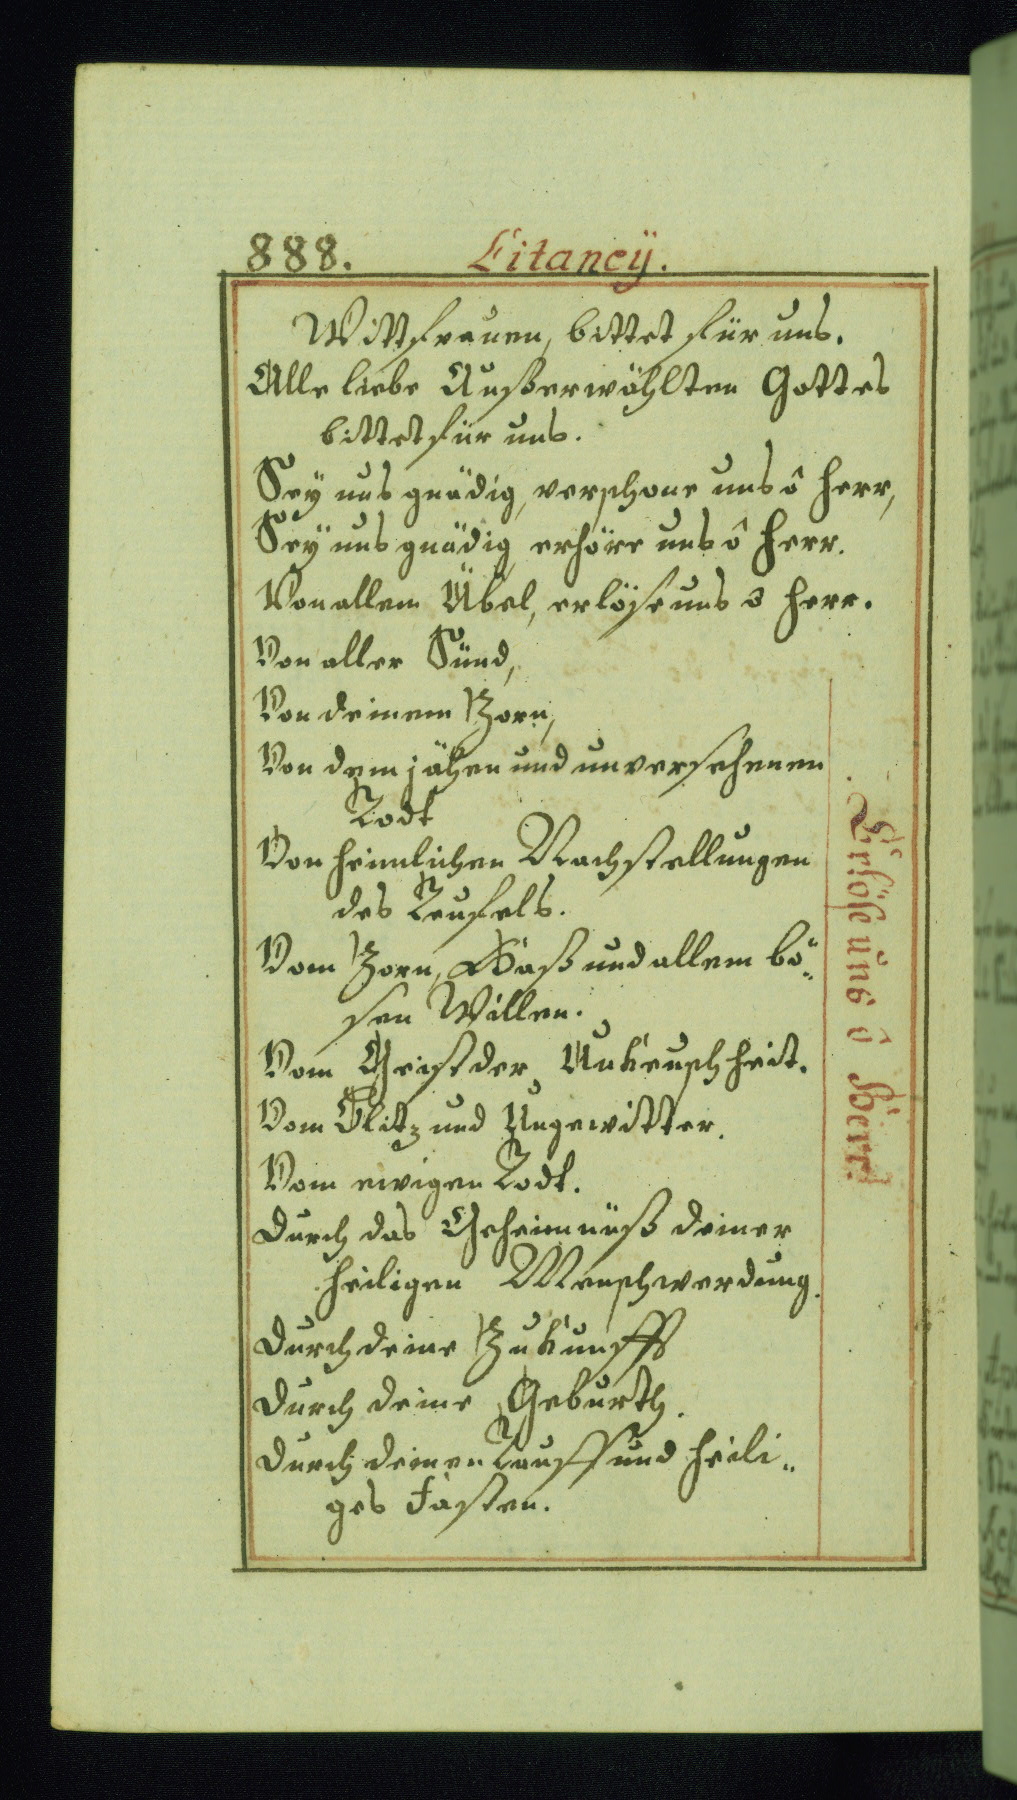 888. Litaneÿ.
Wittfrauen, bittet für uns.
Alle liebe Außerwöhlten Gottes
bittet für uns.
Seÿ uns gnädig, verschone uns ô Herr,
Seÿ uns gnädig erhöre uns ô Herr.
Von allem Übel, erlöse uns o Herr.
Von aller Sünd,
Von deinem Zorn,
Von dem jähen und unversehenen
Todt
Von heimlichen Nachstellungen
des Teufels.
Vom Zorn, Haß und allem bö„
sen Willen.
Vom Geist der Unkeuschheit.
Vom Blitz und Ungewitter.
Vom ewigen Todt.
Durch das Geheimnüß deiner
heiligen Menschwerdung.
Durch deine Zukunfft
Durch deine Geburth.
Durch deinen Tauff und heili„
ges Fasten.
Erlöse uns ô Herr.